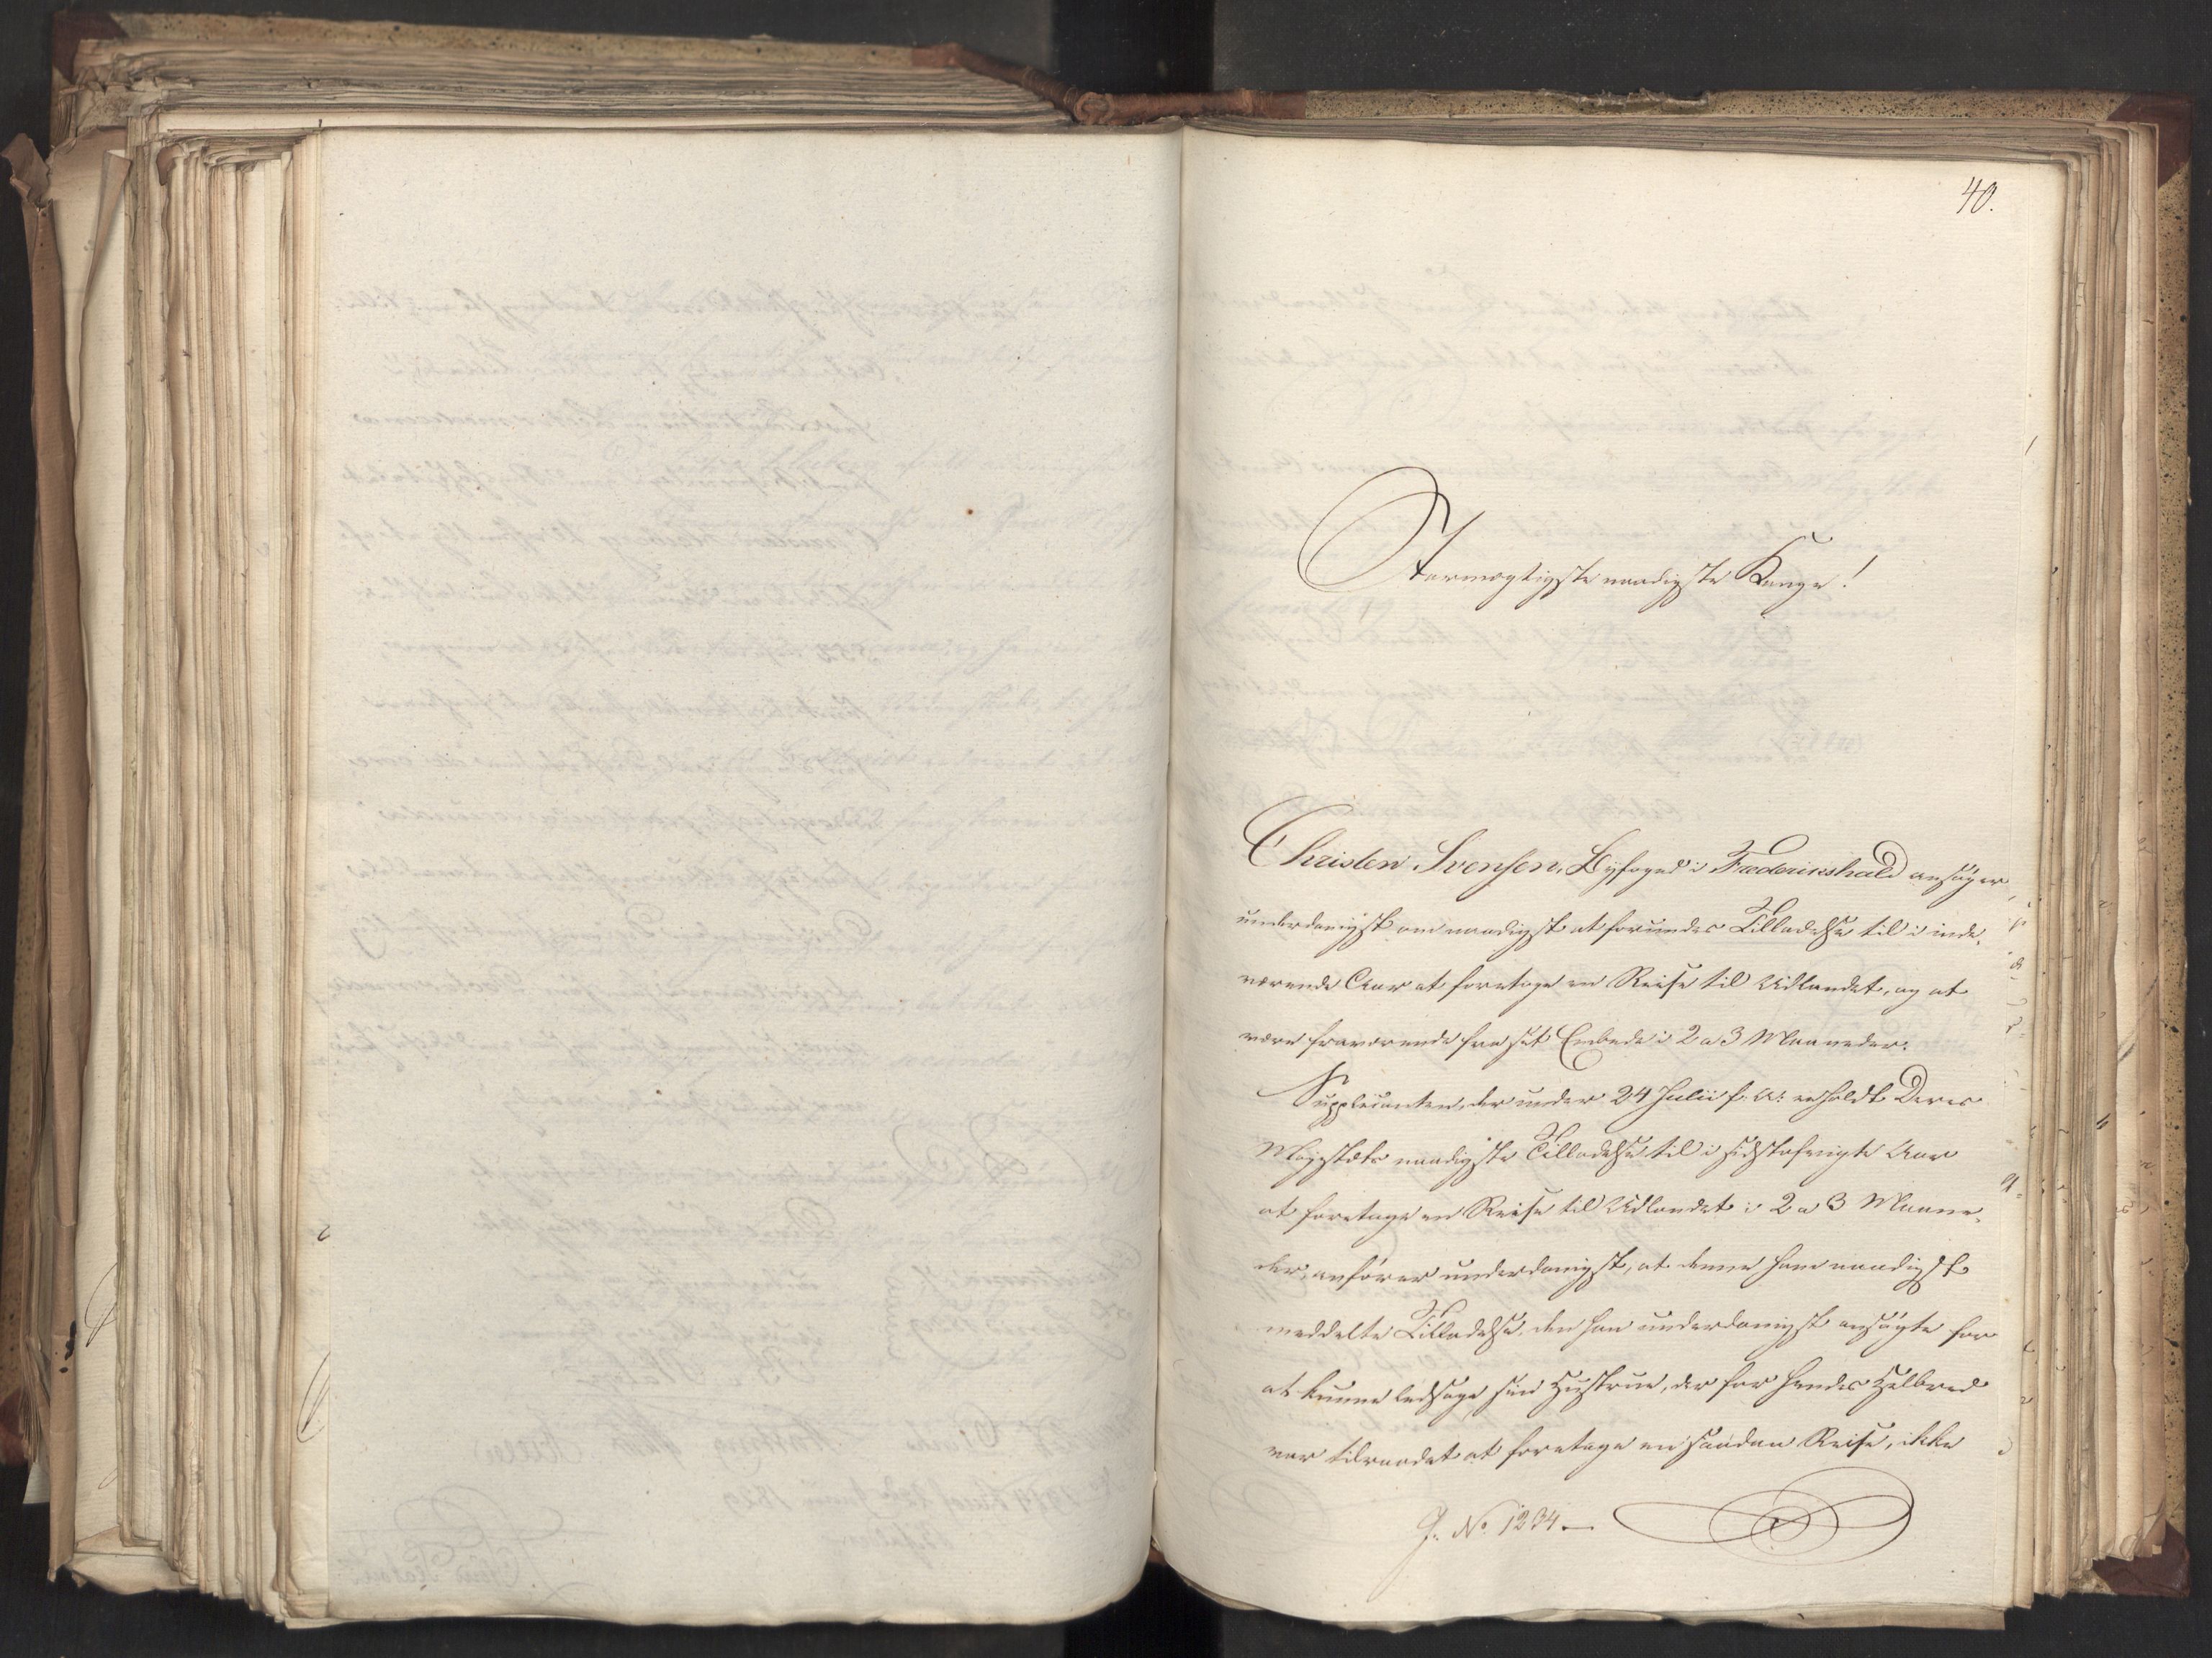 40.
Stormægtigste naadigste Konge!
Christen Svensen, Byfoged i Frederikshald ansøger
underdanigst om naadigst at forundes Tilladelse til i inde-
værende Aar at foretage en Reise til Udlandet, og at
være fraværende fra sit Embede i 2 a 3 Maaneder.
Supplicanten, der under 24 Julii f. A. erholdt Deres
Majestæts naadigste Tilladelse til i sidstafvigte Aar
at foretage en Reise til Udlandet i 2 a 3 Maane-
der, anfører underdanigst, at denne ham naadigst
meddelte Tilladelse, den han underdanigst ansøgte for
at kunne ledsage sin Hustrue, der for hendes Helbred
var tilraadet at foretage en saadan Reise, ikke
J. No 1234 —